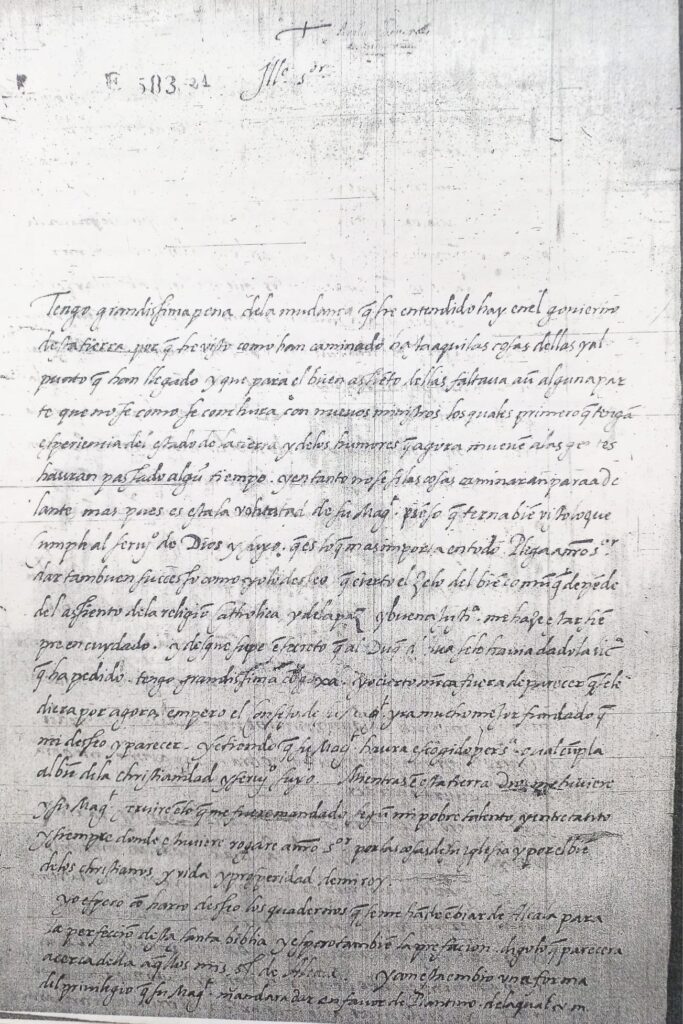 583 21
Jlle. sor.
Tengo grandissima pena dela mudança q̃ he entendido hay en el govierno
desta tierra, por q̃ he visto como han caminado hasta aqui las cosas dellas y al
punto q̃ hon llegado y que para el buen assieto dellas faltava aũ alguna par
te que no se como se concluira cõ nuevos ministros los quales primero q̃ tengã
esperiencia del estado dela tierra y delos humores q̃ agora mueuẽ alas gẽtes
hauran passado algũ tiempo. y en tanto no se si las cosas caminaran para ade
lante mas pues es esta la voluntad de su Magt. pieso q̃ terna biẽ visto lo que
cumple al seruio de Dios y suyo. q̃ es lo q̃ mas importa en todo. Plega a nrõ sor
dar tambuen successo como yo lo desseo, q̃ cierto el zelo del biẽ comũ q̃ depẽde
del assiento dela religiõ catholica y dela paz y buena justa. me haze estar siẽ
pre en cuydado. y desque supe el secreto q̃ al Duq̃ d Alua se le hauia dado la lica
q̃ ha pedido. tengo grandissima cõgoxa. yo cierto nũca fuera de parecer q̃ se le
diera por agora, empero el consejo de su Magt. yra mucho mejor fundado q̃
mi desseo y parecer. y entiendo q̃ su Magt. haura escogido persa. qual cũpla
al biẽ dela christiandad y seruio suyo. Mientras ẽ esta tierra Dios me tuuiere
y su Magt. seruire ẽ lo q̃ me fuere mandado segũ mi pobre talento
y siempre donde estuuiere rogare a nrõ sor por las cosas de su iglesia y por el biẽ
delos christianos y vida y prosperidad de mi rey.
yo espero cõ harto desseo los quadernos q̃ se me hã de ẽbiar de Alcala para
la perfeciõ desta santa biblia y espero tambiẽ la prefacion. digo lo q̃ parecera
acerca della aq̃llos mis sres de Alcala. y con esta embio una forma
del privilegio q̃ su Magt. mãndara dar en favor de Plantino. dela qual